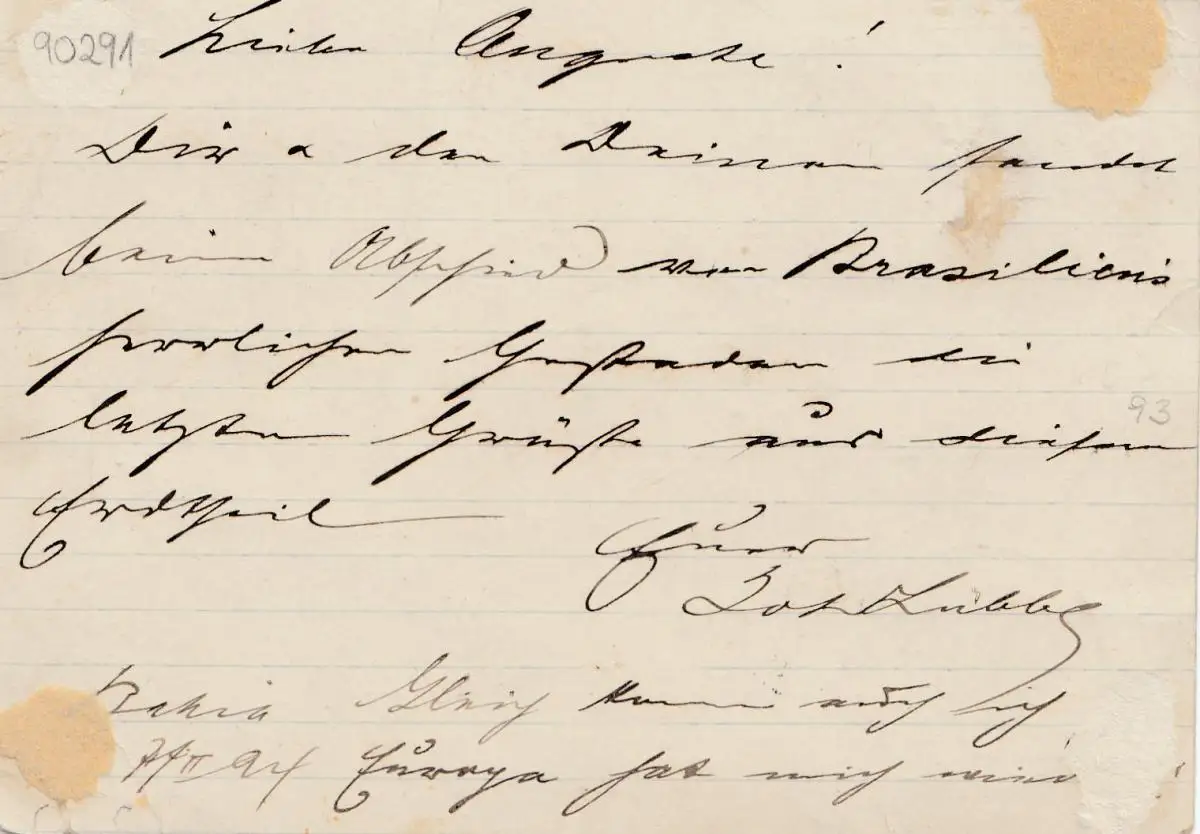 90291
Lieber Auguste!
Dir u den Deinen sendet
beim Abschied von Brasilien's
herrlichen Gestaden die
letzten Grüße aus diesem
93
Erdtheil
Euer
Joh Lübbe
Bahia Gleich kann auch ich
Europa hat mich